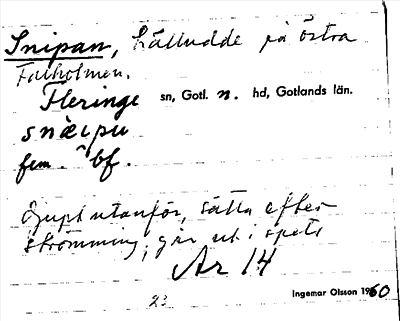 Snipan, hälludde på östra
Falholmen.
Fleringe sn, Gotl. n. hd, Gotlands län.
snäipu
fem. bf.
Djupt utanför, sätta efter
strömming, går ut i spets
Ar 14
Ingemar Olsson 1960
23